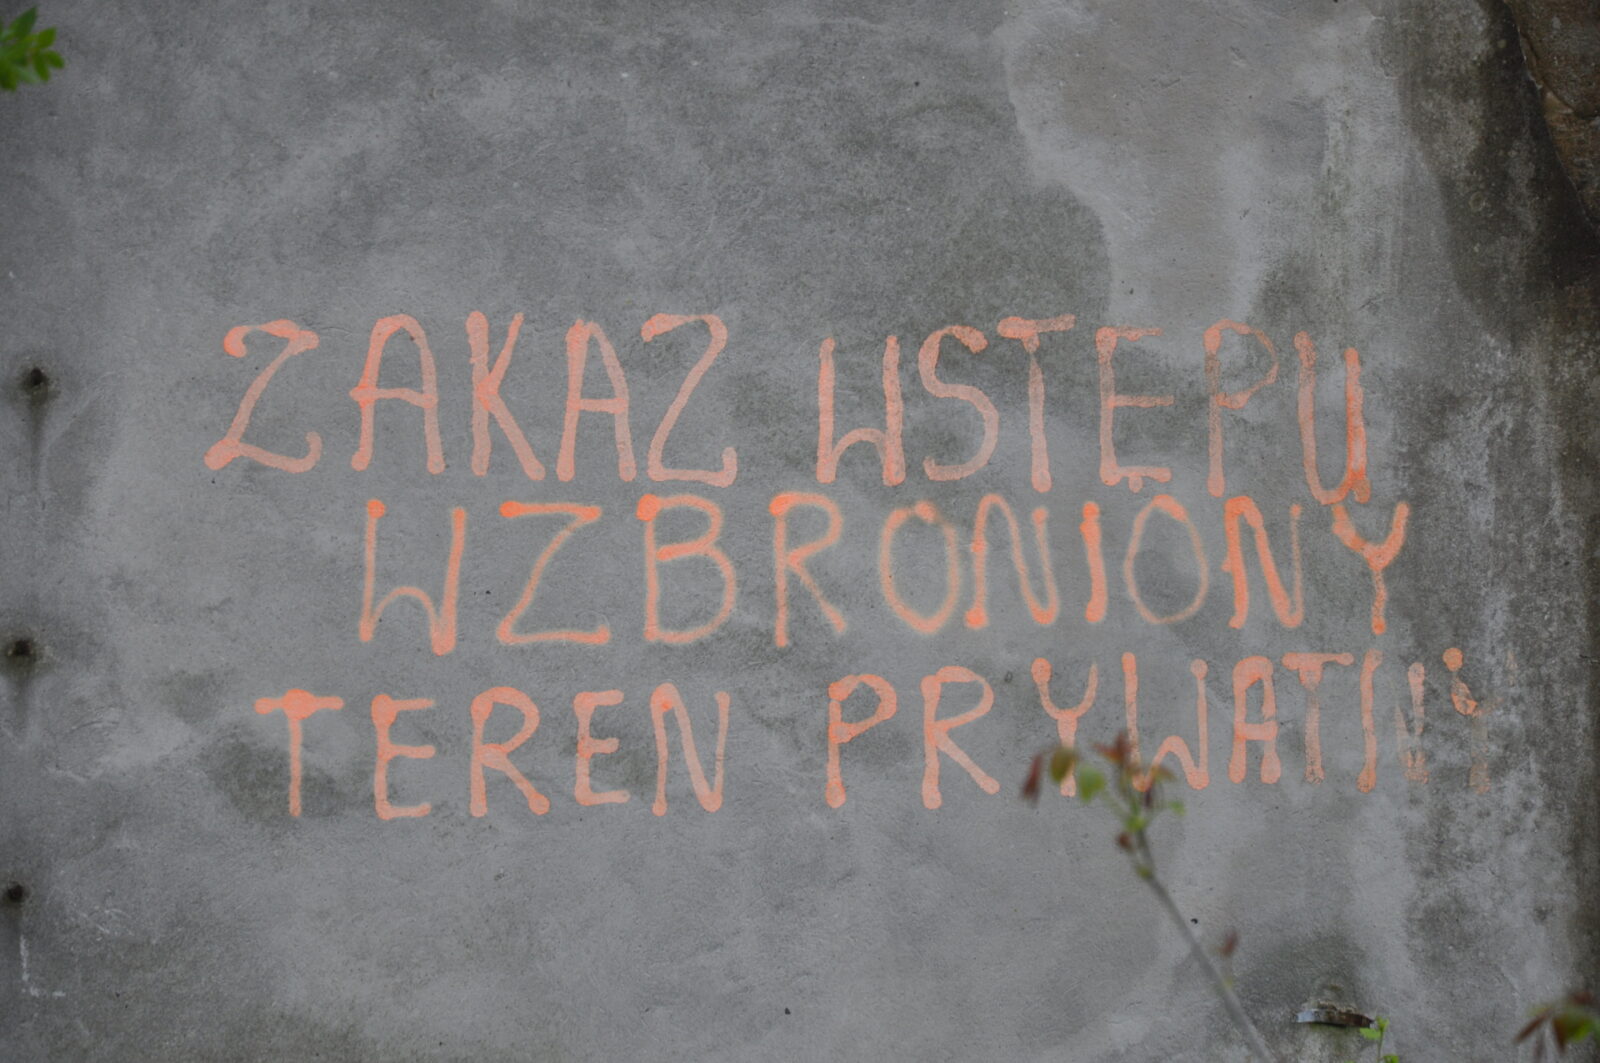 ZAKAZ WSTĘPU
WZBRONIONY
TEREN PRYWATNY